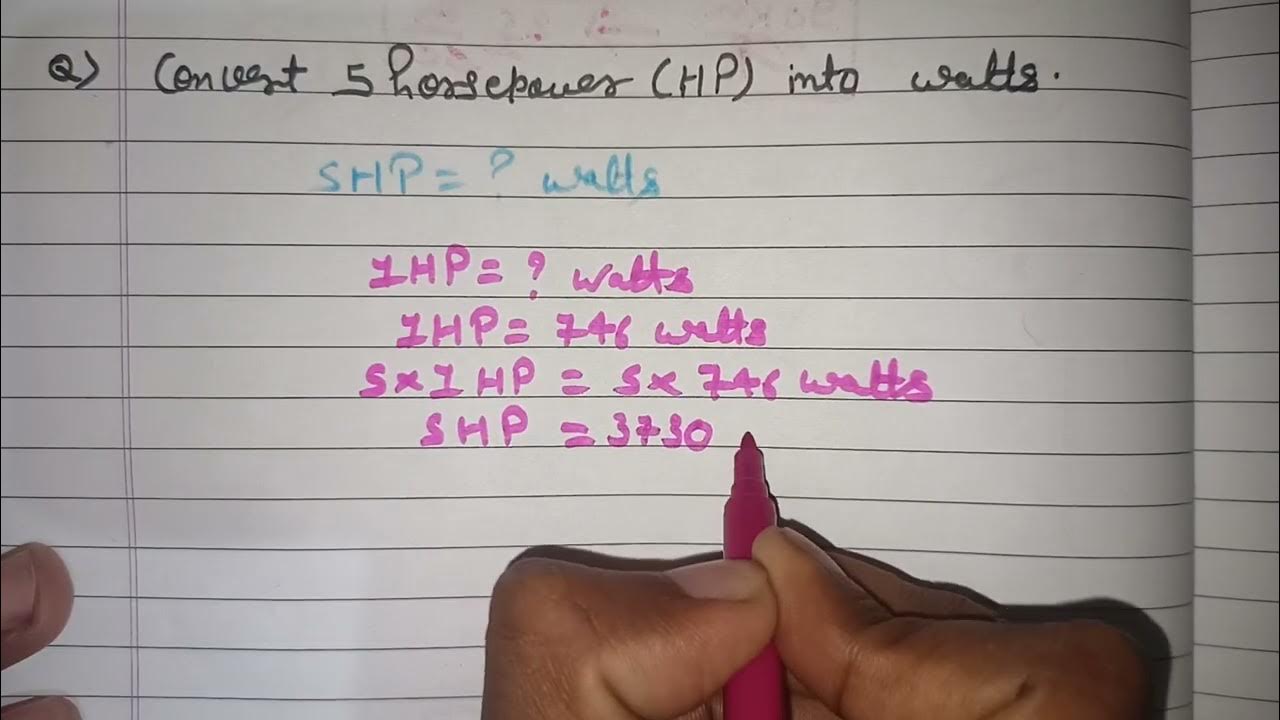 Q) Convert 5 horsepower (HP) into watts.
5HP = ? watts
1HP = ? watts
1HP = 746 watts
5 x 1 HP = 5 x 746 watts
5 HP = 3730